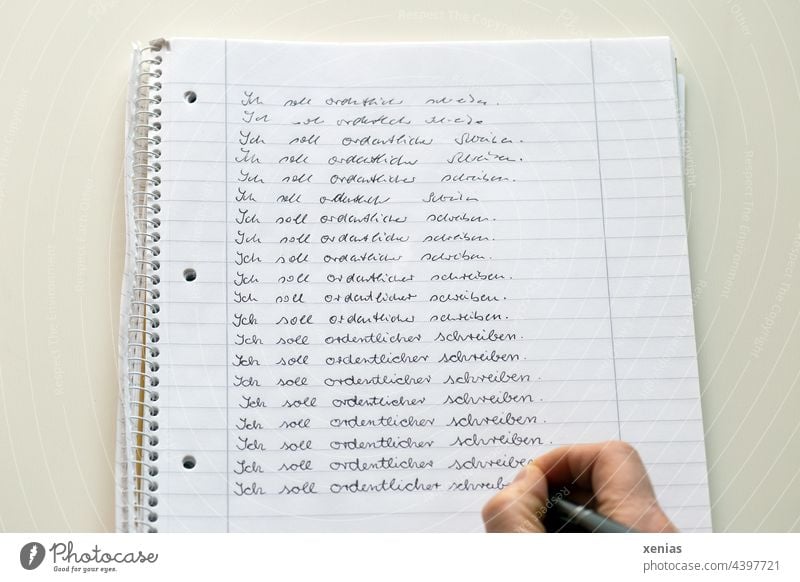 Ich soll ordentlicher schreiben.
Ich soll ordentlich
Ich soll ordentlicher schreiben.
Ich soll ordentlicher schreiben.
Ich soll ordentlicher schreiben.
Ich soll ordentlich
Ich soll ordentlicher schreiben.
Ich soll ordentlicher schreiben.
Ich soll ordentlicher schreiben.
Ich soll ordentlicher schreiben.
Ich soll ordentlicher schreiben.
Ich soll ordentlicher schreiben.
Ich soll ordentlicher schreiben.
Ich soll ordentlicher schreiben.
Ich soll ordentlicher schreiben.
Ich soll ordentlicher schreiben.
Ich soll ordentlicher schreiben.
Ich soll ordentlicher schreiben.
Ich soll ordentlicher schreiben
Ich soll ordentlicher schreib
PHOTOCASE
Good for your eyes.
xenias
photocase.com/4397721